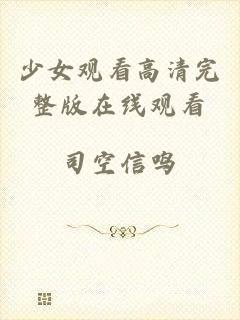 少女观看高清完
整版在线观看
司空信鸣